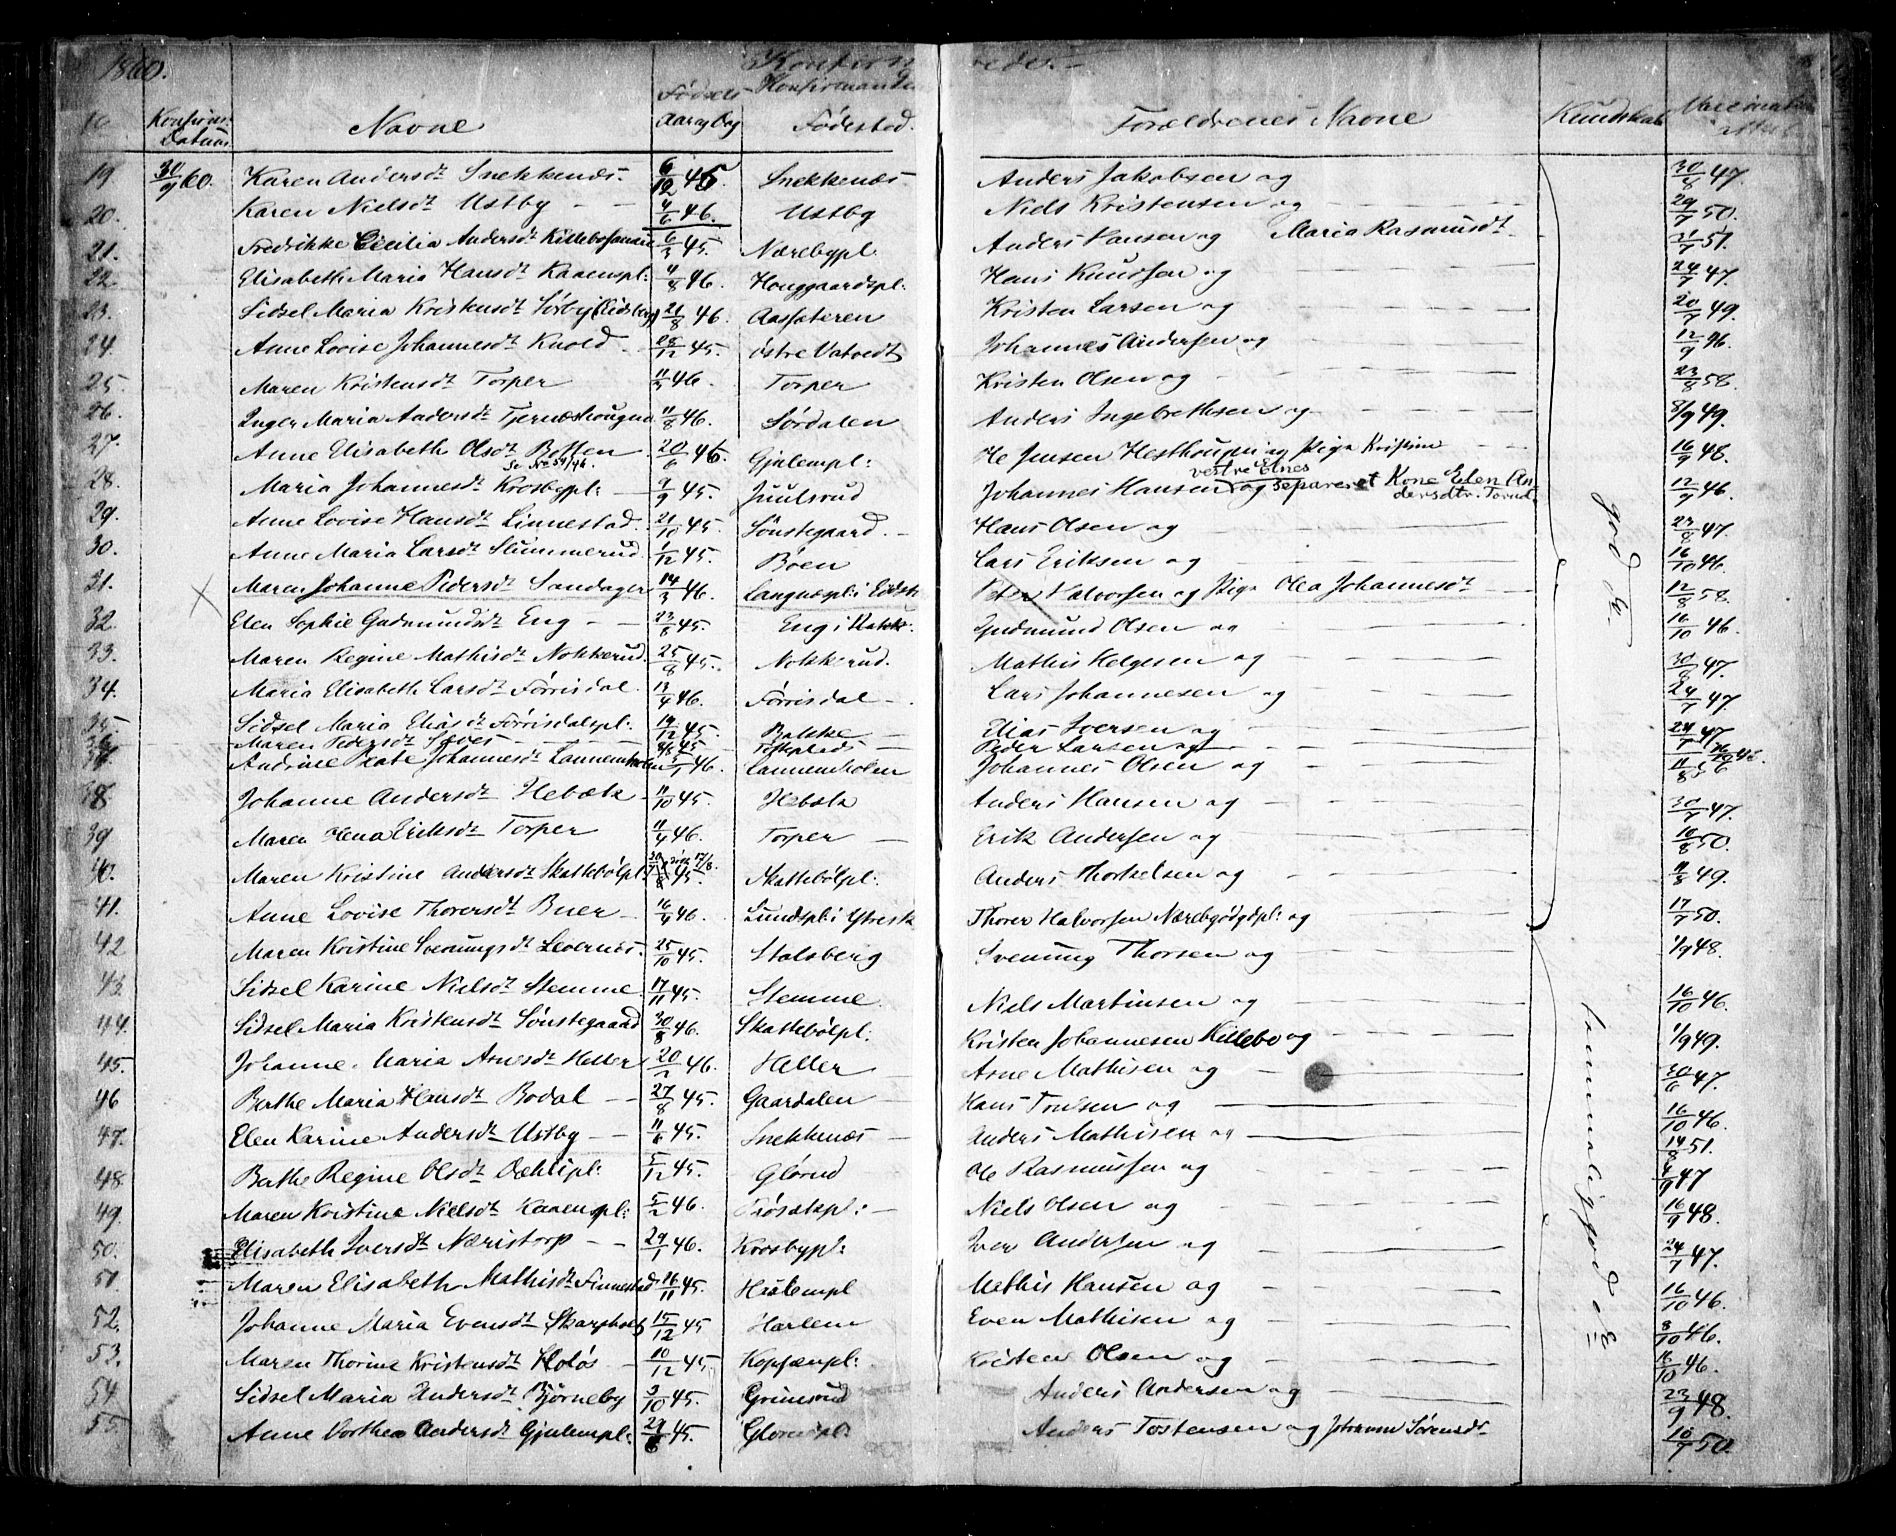 1860.
Konfirm: Datum Navne Fødsels Aar og Dag Konfirmandens Fødested. Forældrenes Navne Kundskab Vaccination attest
19. 30/9 60. Karen Andersdt Snekkenæs. 6/12 45. Snekkenæs Anders Jakobsen og 30/8 47.
20. Karen Nielsdt Ustby 4/6 46. Ustby Niels Kristensen og 29/7 50.
21. Fredrikke Cecilia Andersdt Killebo 6/3 45. Nærebypl. Anders Hansen og Maria Rasmusdt 21/7 51.
22. Elisabeth Maria Hansdt Kaaenspl: 4/8 46. Houggaardspl: Hans Knudsen og 24/7 47.
23. Sidsel Maria Kristensdt Sørby (Eidsberg) 21/8 46. Aasfateren Kristen Larsen og 20/7 49.
24. Anne Lovise Johannesdt Knold 28/12 45. østre Vatvedt Johannes Andersen og 12/9 46.
25. Maren Kristensdt Torper 11/3 46. Torper Kristen Olsen og 23/8 58.
26. Inger Maria Andersdt Tjernæshougen 11/8 46. Sørdalen Anders Ingebrethsen og 8/9 49.
27. Anne Elisabeth Olsdt Botten 20/6 46. Gjulempl: Ole Jensen Hesthougen og Pige Kristine 16/9 48.
se No 54/46.
28. Maria Johannesdt Krosbypl: 9/9 45. Juulsrud Johannes Hansen vestre Elnes og separeret Kone Elen Andersdtr. Torud 12/9 46.
29. Anne Lovise Hansdt Linnestad. 21/10 45. Sønstegaard. Hans Olsen og 27/8 47.
30. Anne Maria Larsdt Slummerud. 1/12 45. Bøen Lars Eriksen og 16/10 46.
31. Maren Johanne Pedersdt Sandager 14/3 46. Langnæspl: i Eidsb Peter Halvorsen og Pige Olea Johannesdt 12/8 58.
32. Elen Sophie Gudmundsdt Eng 23/8 45. Eng i Rakk: Gudmund Olsen og 16/10 46.
33. Maren Regine Mathisdt Nokkerud. 25/8 45. Nokkerud. Mathis Helgesen og 30/8 47.
34. Maria Elisabeth Larsdt Førrisdal. 13/4 46. Førrisdal Lars Johannesen og 24/7 47.
35. Sidsel Maria Eliasdt Førrisdalspl: 19/12 45. Bakke Elias Iversen og 24/7 47
36. Maren Pedersdt 45 Peder Larsen og 46.
37. Andrine Beate Johannesdt Lannemholen 5/1 46. Lannemholen Johannes Olsen og 11/8 56
38. Johanne Andersdt Hebæk 11/10 45. Hebæk Anders Hansen og 30/7 47.
39. Maren Lena Eriksdt Torper 11/4 46. Torper Erik Andersen og 10/8 50.
40. Maren Kristine Andersdt Skattebølpl. 45. 17/8. Skattebølpl: Anders Thorkelsen og 11/8 49.
41. Anne Lovise Thorersdt Buer 16/4 46. Lundspl: i Ytresk Thorer Halvorsen Nærebgødgdpl: og 17/7 50.
42 Maren Kristine Svenungsdt Levernæs. 25/10 45. Stalsberg Svenung Thorsen og 1/9 48.
43. Sidsel Karine Nielsdt Stemme 17/11 45. Stemme. Niels Martinsen og 16/10 46.
44. Sidsel Maria Kristensdt Sønstegaard 30/8 46. Skattebølpl: Kristen Johannesen Killebo og 1/9 49.
45. Johanne Maria Arnesdt Heller 20/ 46. Heller Arne Mathisen og 30/6 47.
46 Berthe Maria Hansdt Bodal 27/8 45. Gaardalen Hans Poulsen og 16/10 46.
47. Elen Karine Andersdt Ustby 11/6 45. Snekkenæs Anders Mathisen og 14/8 51.
48. Berthe Regine Olsdt Dæhlipl: 5/12 45. Glørud Ole Rasmussen og 4/9 47
49. Maren Kristine Nielsdt Kaaenspl: 5/2 46. Niels Olsen og 16/9 48.
50. Elisabeth Iversdt Næristorp 29/1 46. Krosbypl: Iver Andersen og 24/7 47.
51. Maren Elisabeth Mathisdt Finnestad 16/11 45. Hiulempl Mathis Hansen og 16/10 46.
52. Johanne Maria Evensdt Skarpholt 15/12 45 Harlem Even Mathisen og 8/10 46.
53. Maren Thorine Kristensdt Holøs 10/12 45 Kopsænpl: Kristen Olsen og 16/10 46.
54. Sidsel Maria Andersdt Bjørneby 3/10 45. Grimsrud Anders Andersen og 23/9 48.
55. Anne Dorthea Andersdt Gjulempl: 29/6 45. Glorudpl: Anders Tostensen og Johanne Sørensdt 10/7 50.
god &c.
temmelig god &c